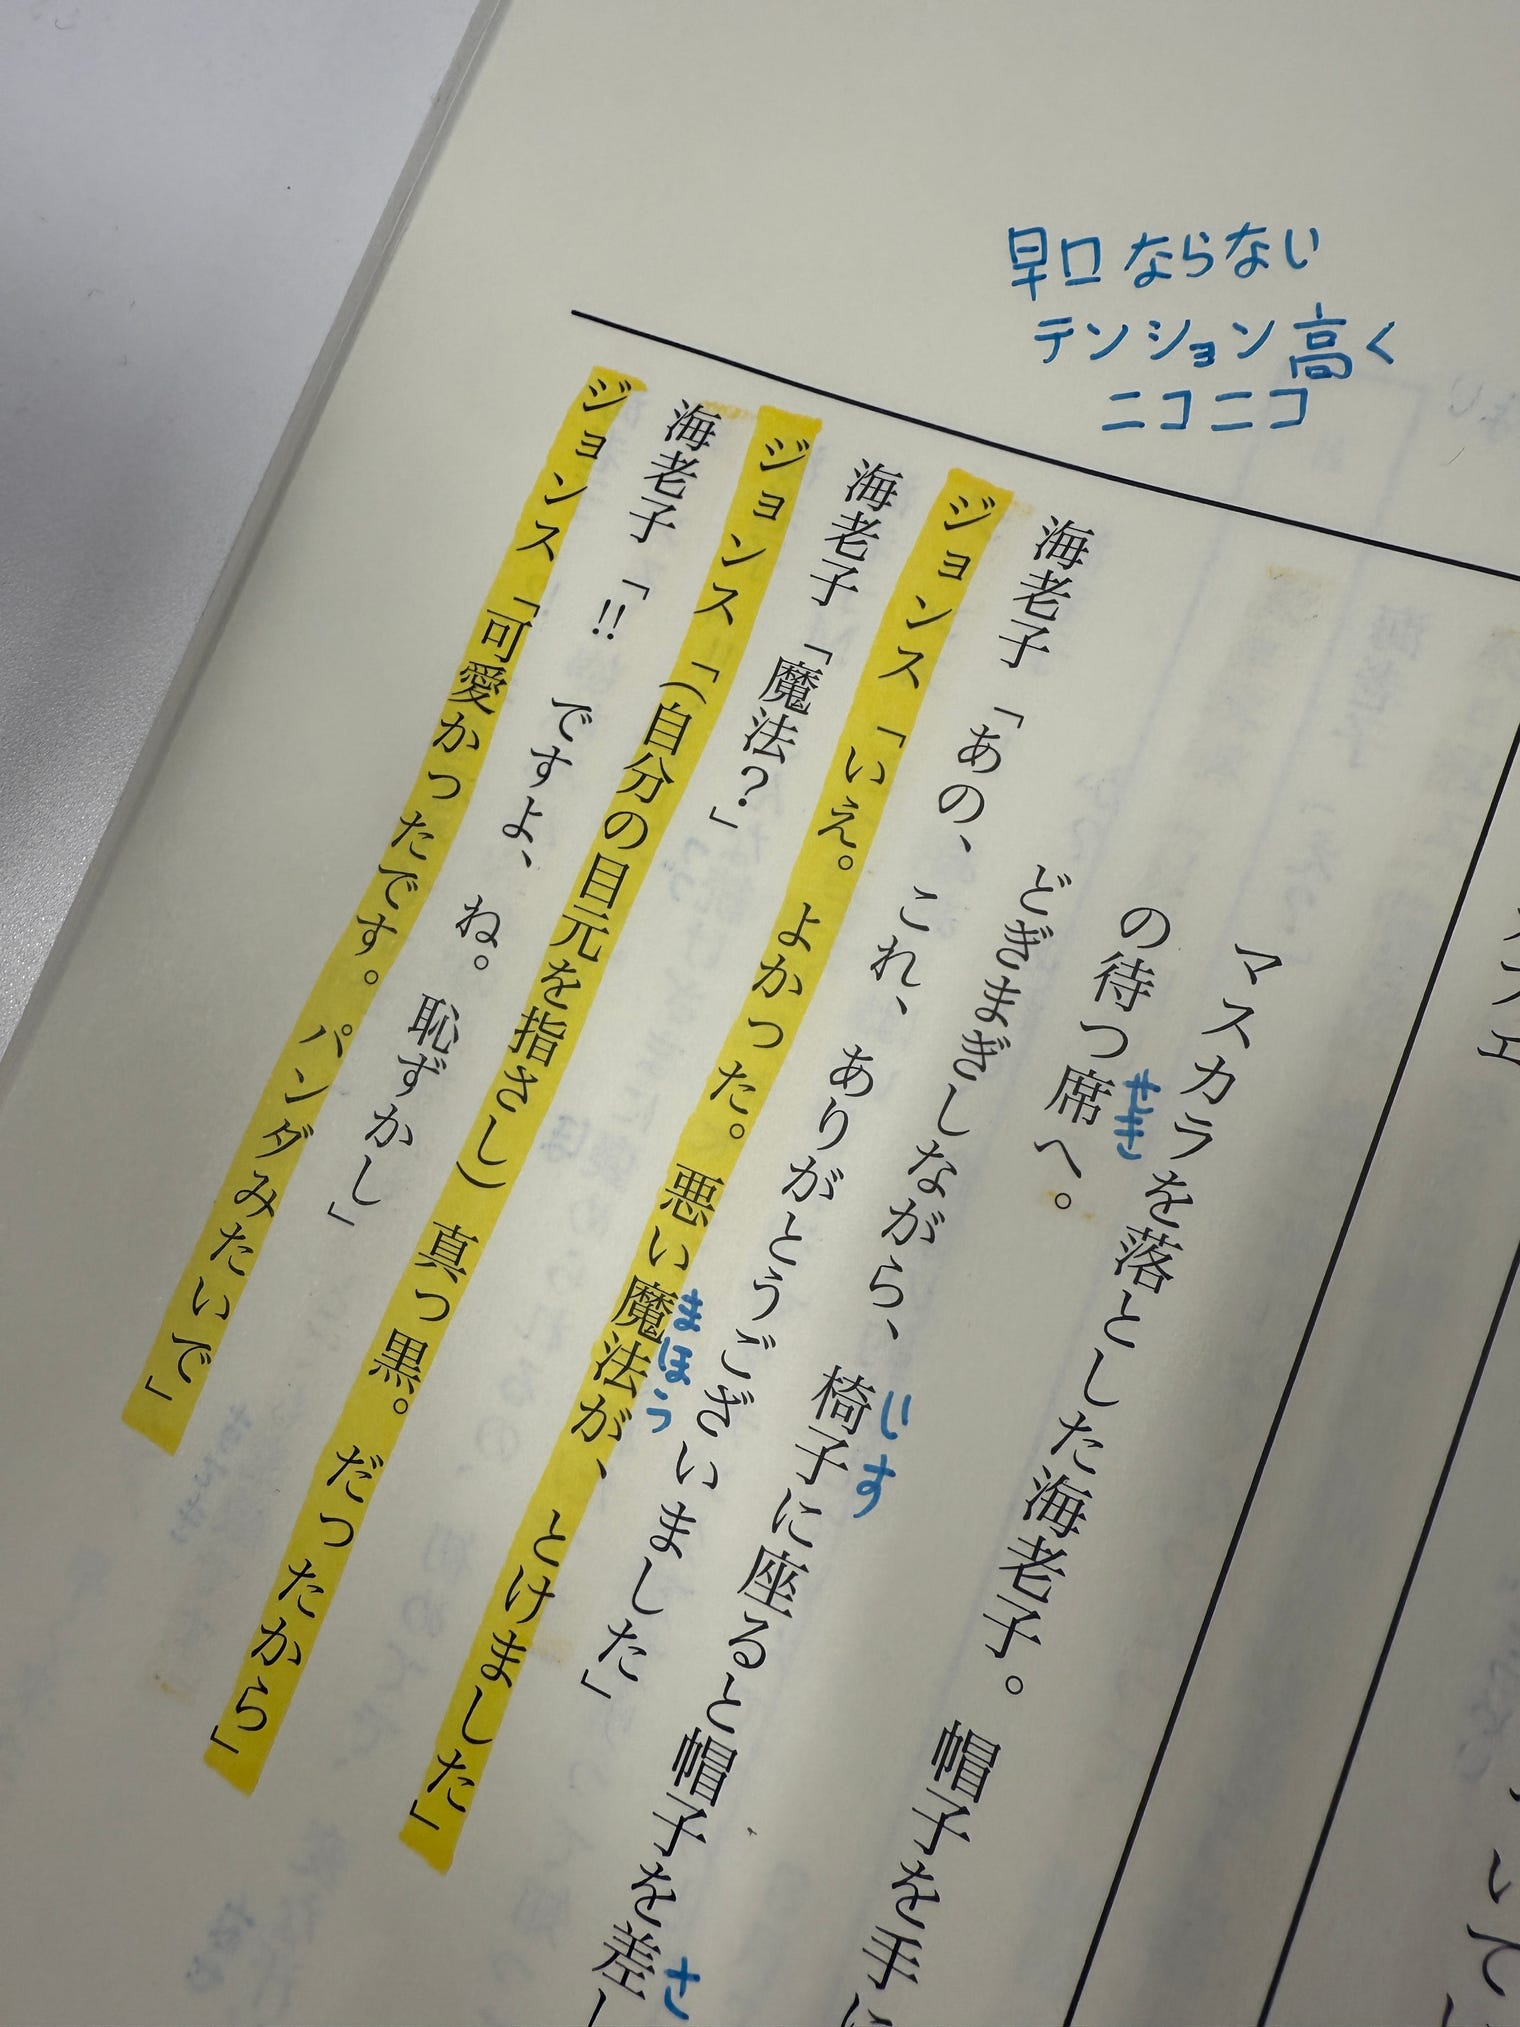 早口ならない
テンション高く
ニコニコ
マスカラを落とした海老子。帽子を手に
の待つ席へ。
せき
どぎまぎしながら、椅子に座ると帽子を差し
じす
さ
海老子「あの、これ、ありがとうございました」
ジョンス「いえ。よかった。悪い魔法が、とけました」
まほう
海老子「魔法?」
ジョンス「(自分の目元を指さし)真っ黒。だったから」
海老子「!! ですよ、ね。恥ずかし」
ジョンス「可愛かったです。パンダみたいで」